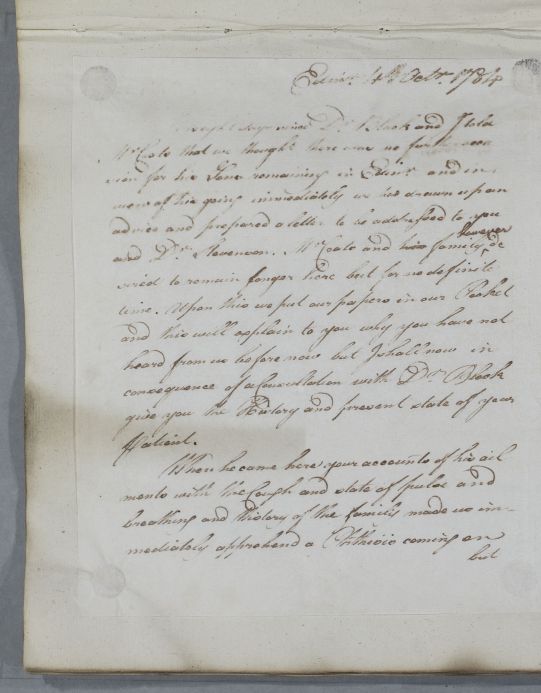 Edinr. 4th Octr. 1784
Dr. Black and I told
Mr. Coats that we thought there was no further occa
sion for his Son's remaining in Edinr. and in
view of his going immediately we had drawn up an
advice and prepared a letter to be addressed to you
and Dr. Stevenson. Mr. Coats and his family however de
sired to remain longer here but for no definite
time. Upon this we put our papers in our Pocket
and this will explain to you why you have not
heard from us before now but I shall now in
consequence of a Consultation with Dr. Black
give you the History and present state of your
Patient.
When he came here your accounts of his ail
ments with the Cough and state of pulse and
breathing and History of the family made us im-
mediately apprehend a Phthisis coming on
but